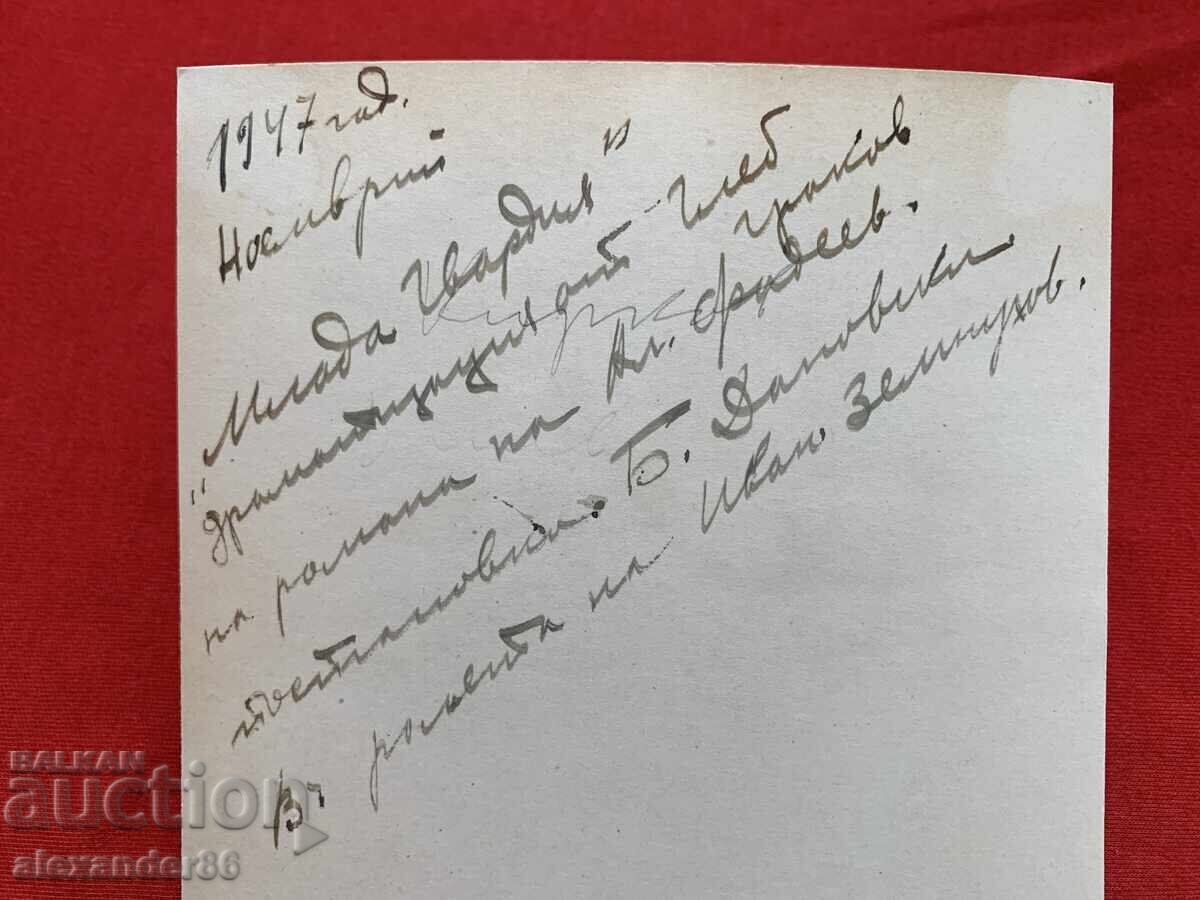 1947 год.
Ноемврий
"Млада Гвардия"
драматизация от Глеб
Граков
на романа на Ал. Фадеев.
постановка: Б. Дановски
В ролята на Иван Земнухов.
BALKAN
auction
alexander86